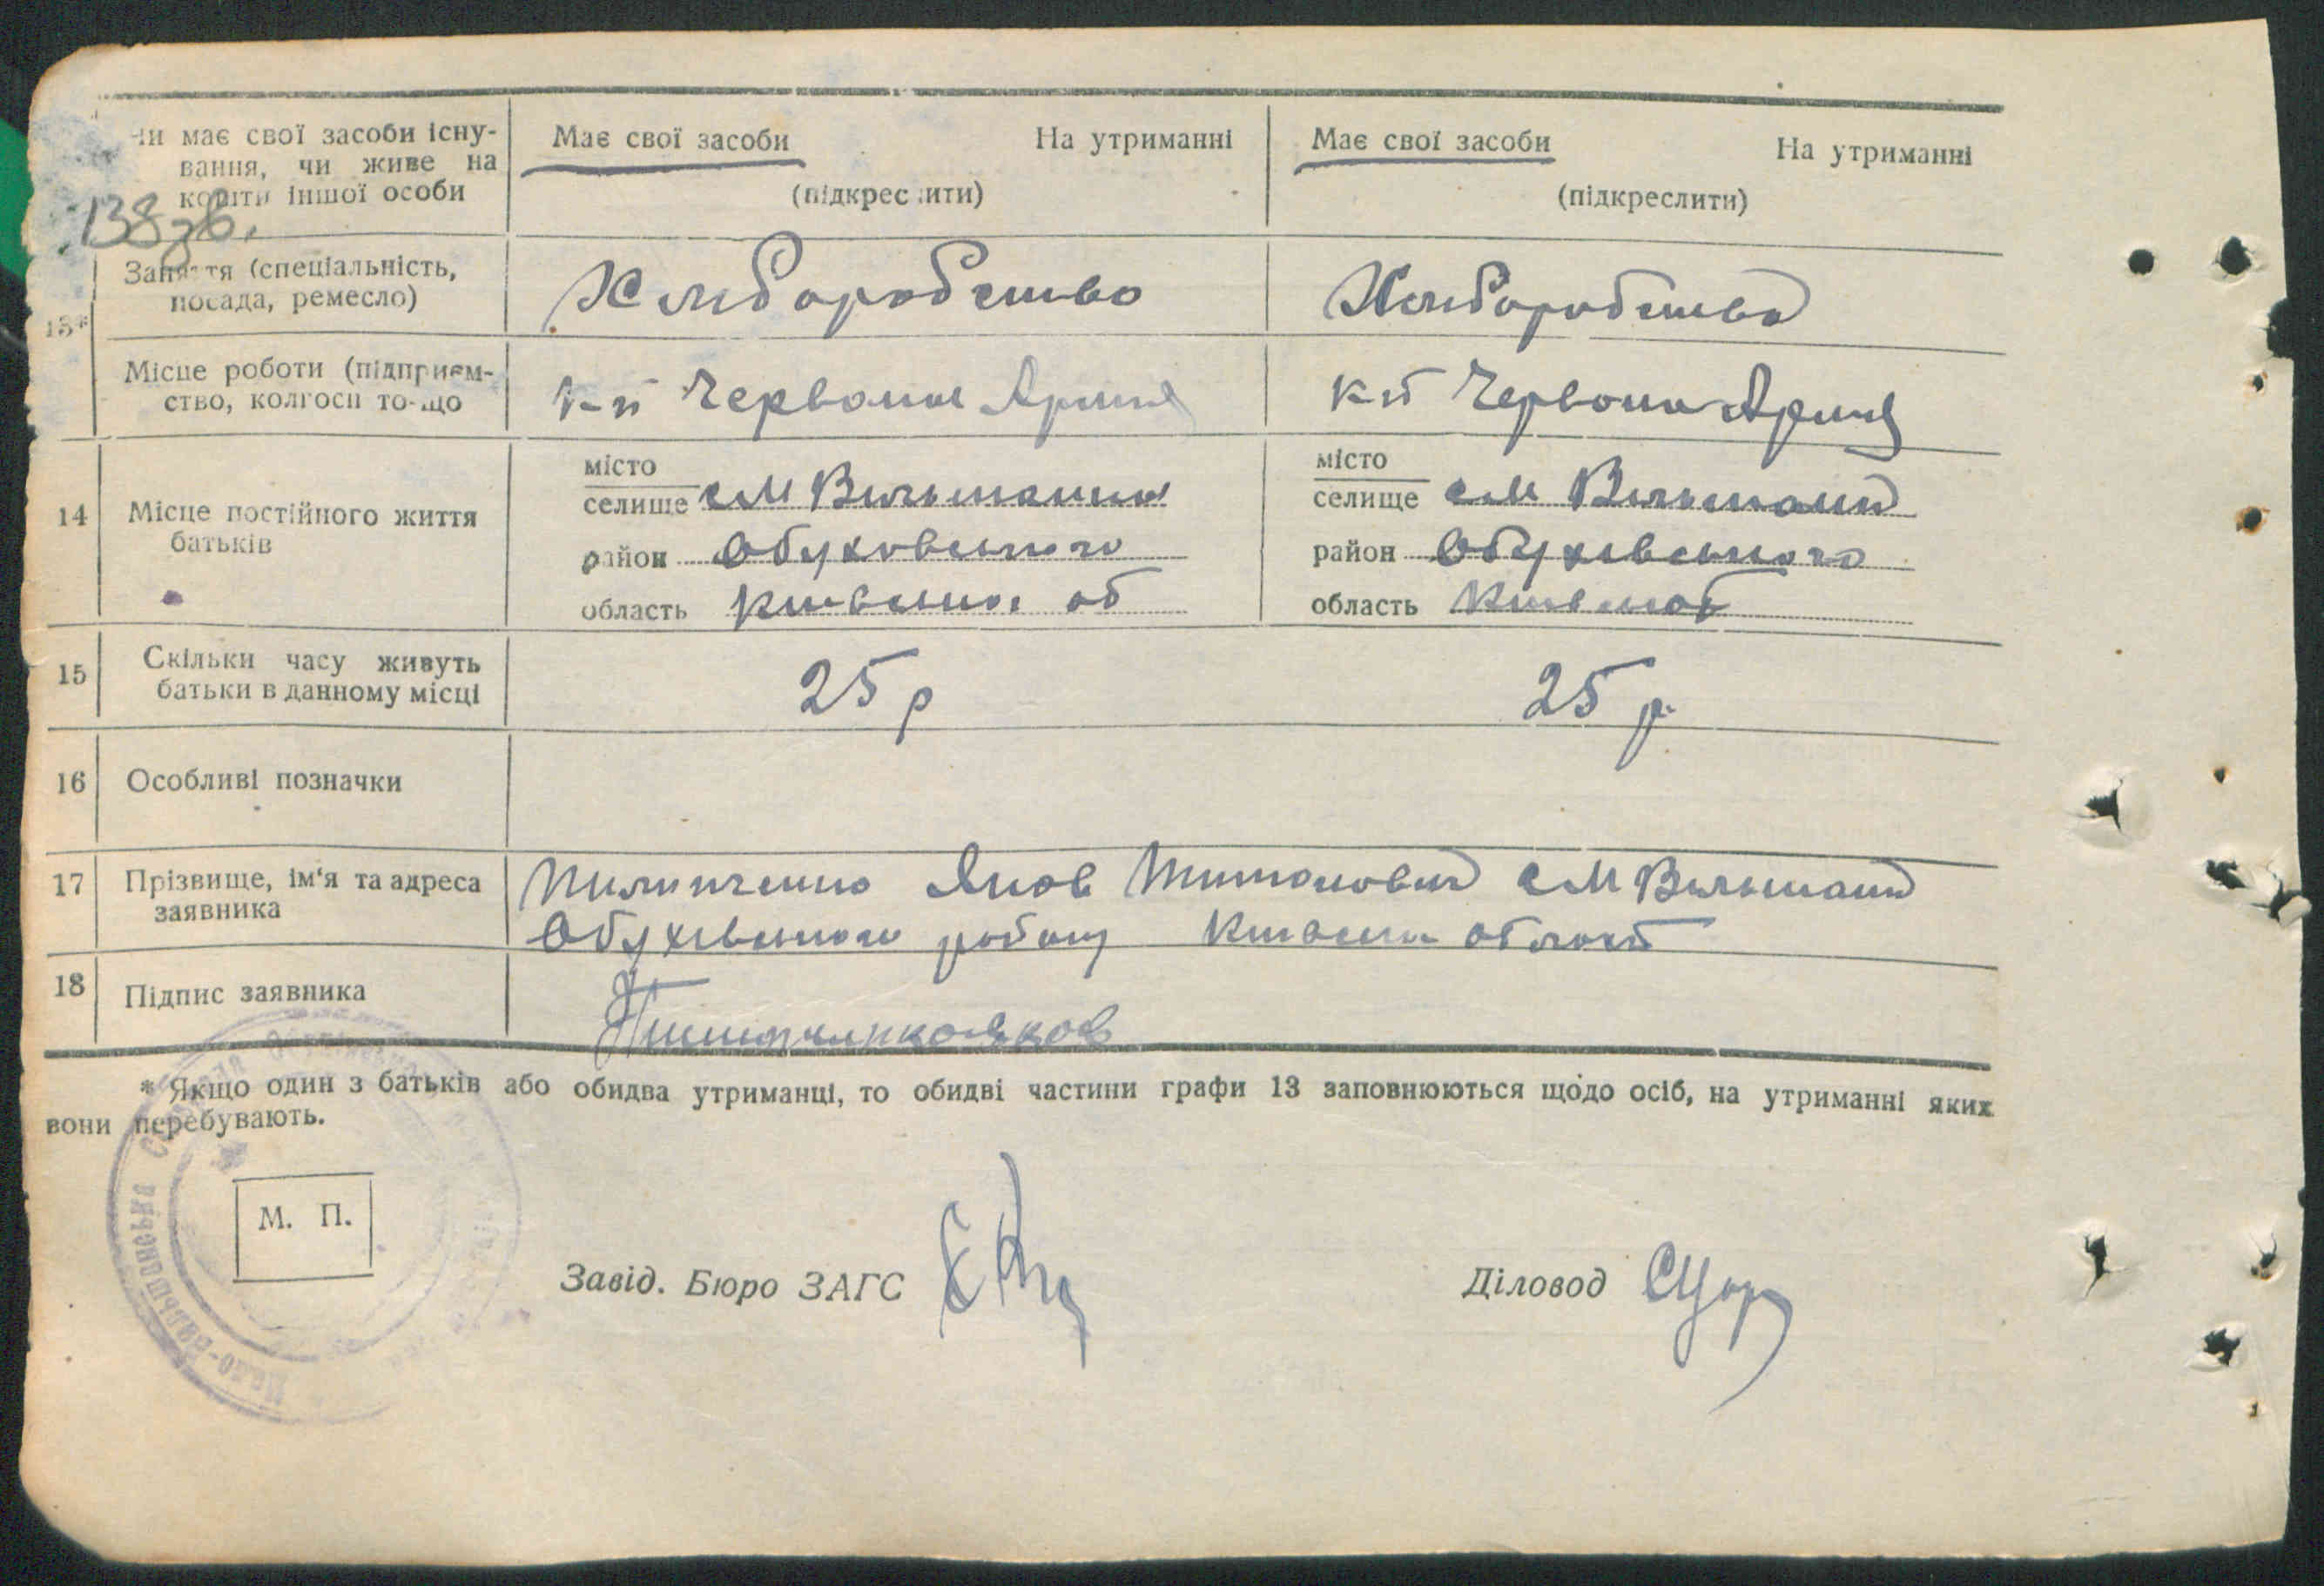 Чи має свої засоби існу-
вання, чи живе на
кошти іншої особи
Має свої засоби На утриманні
(підкреслити)
Має свої засоби На утриманні
(підкреслити)
138зв.
13*
Заняття (спеціальність,
посада, ремесло)
Хліборобство
Хліборобство
Місце роботи (підприєм-
ство, колгосп то-що
Червона Армія
Червона Армія
14 Місце постійного життя
батьків
місто
селище с М Вільшанка
район Обуховського
область Київська об
місто
селище с М Вільшанка
район Обухівського
область Київськ об
15 Скільки часу живуть
батьки в данному місці
25 р
25 р.
16 Особливі позначки
17 Прізвище, ім'я та адреса
заявника
Пилипченко Яков Титонович с М Вільшанка
Обухівського району Київська област
18 Підпис заявника
* Якщо один з батьків або обидва утриманці, то обидві частини графи 13 заповнюються щодо осіб, на утриманні яких
вони перебувають.
М. П.
Завід. Бюро ЗАГС
Діловод